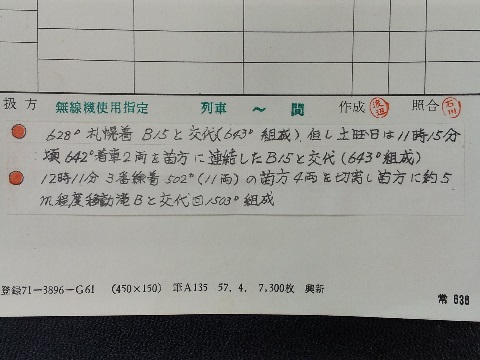 扱方 無線機使用指定 列車 〜 間 作成 渡辺 照合 石川
628° 札幌着 B15と交代(643°組成)、但し土旺日は11時15分
頃642°着車2両を苗方に連結したB15と交代(643°組成)
12時11分 3番線着502°(11両)の苗方4両を切离し苗方に約5
m程度移動滝Bと交代 1503°組成
登録71-3896-G61 (450×150) 筆A135 57. 4. 7,300枚 興新
常 636